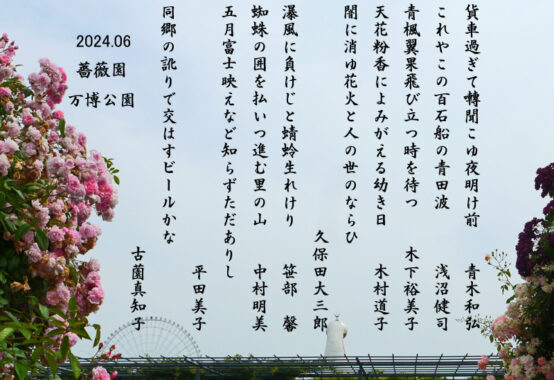 貨車過ぎて囀聞こゆ夜明け前　青木和弘
これやこの百石船の青田波　浅沼健司
青楓翼果飛び立つ時を待つ　木下裕美子
天花粉香によみがえる幼き日　木村道子
闇に消ゆ花火と人の世のならひ　久保田大三郎
瀑風に負けじと蜻蛉生れけり　笹部　馨
蜘蛛の囲を払いつ進む里の山　中村明美
五月富士映えなど知らずただありし　平田美子
同郷の訛りで交はすビールかな　古薗真知子
2024.06
薔薇園
万博公園